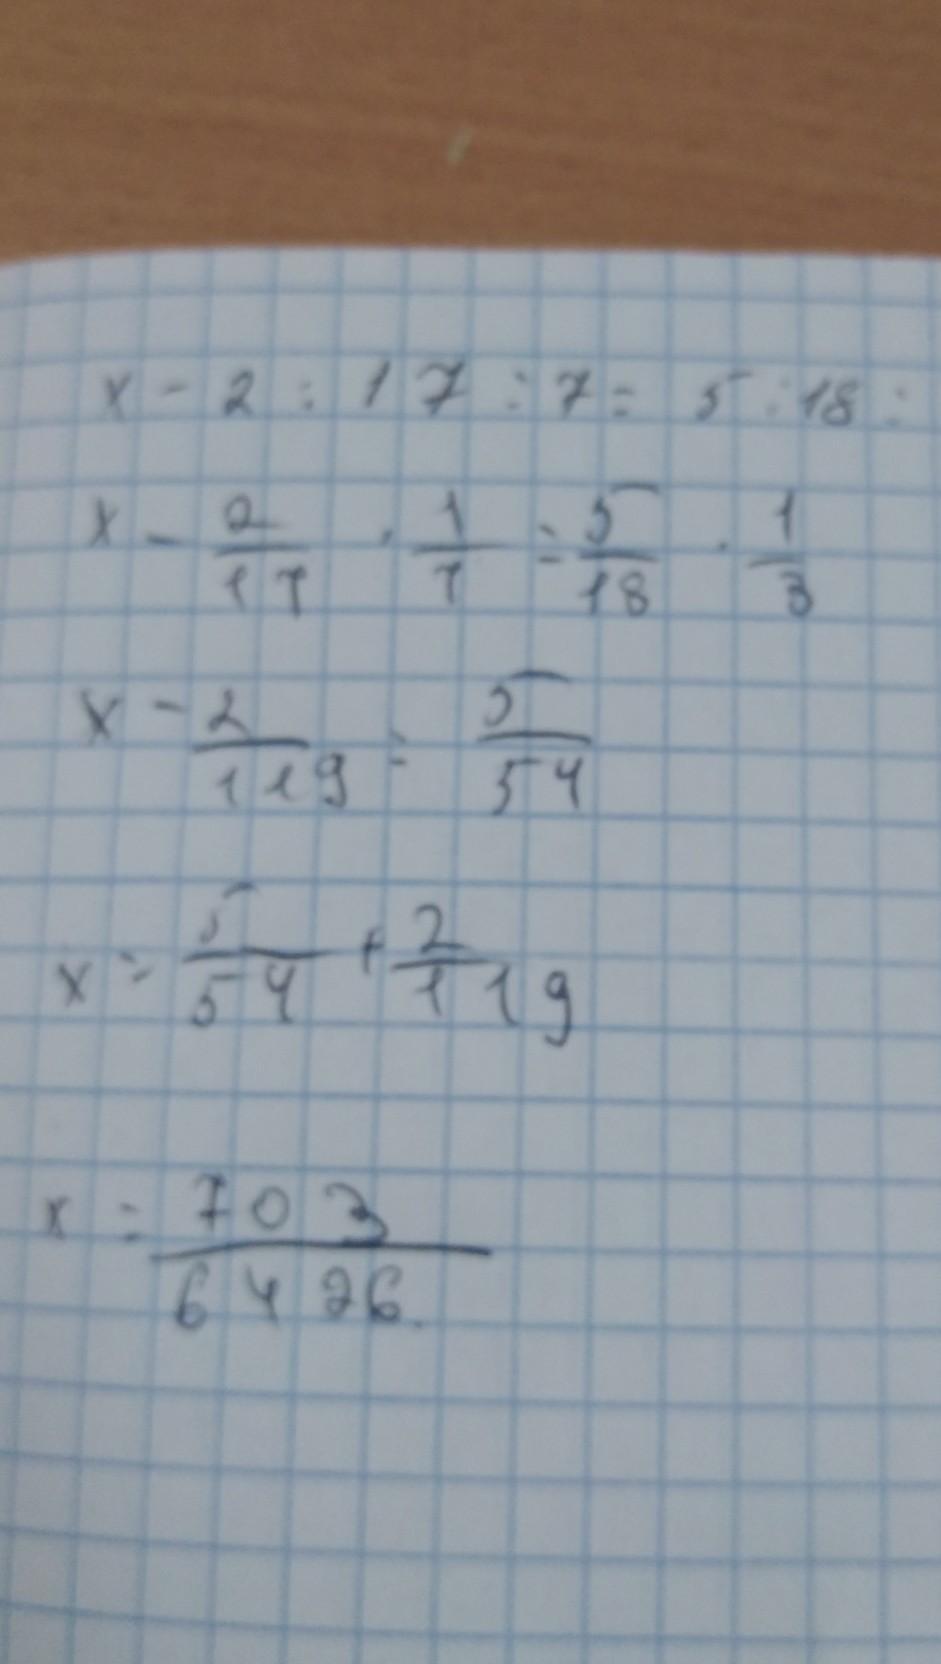 x - 2 : 17 : 7 = 5 : 18 :
x - 2/17 · 1/7 = 5/18 · 1/3
x - 2/119 = 5/54
x = 5/54 + 2/119
x = 703/6426.